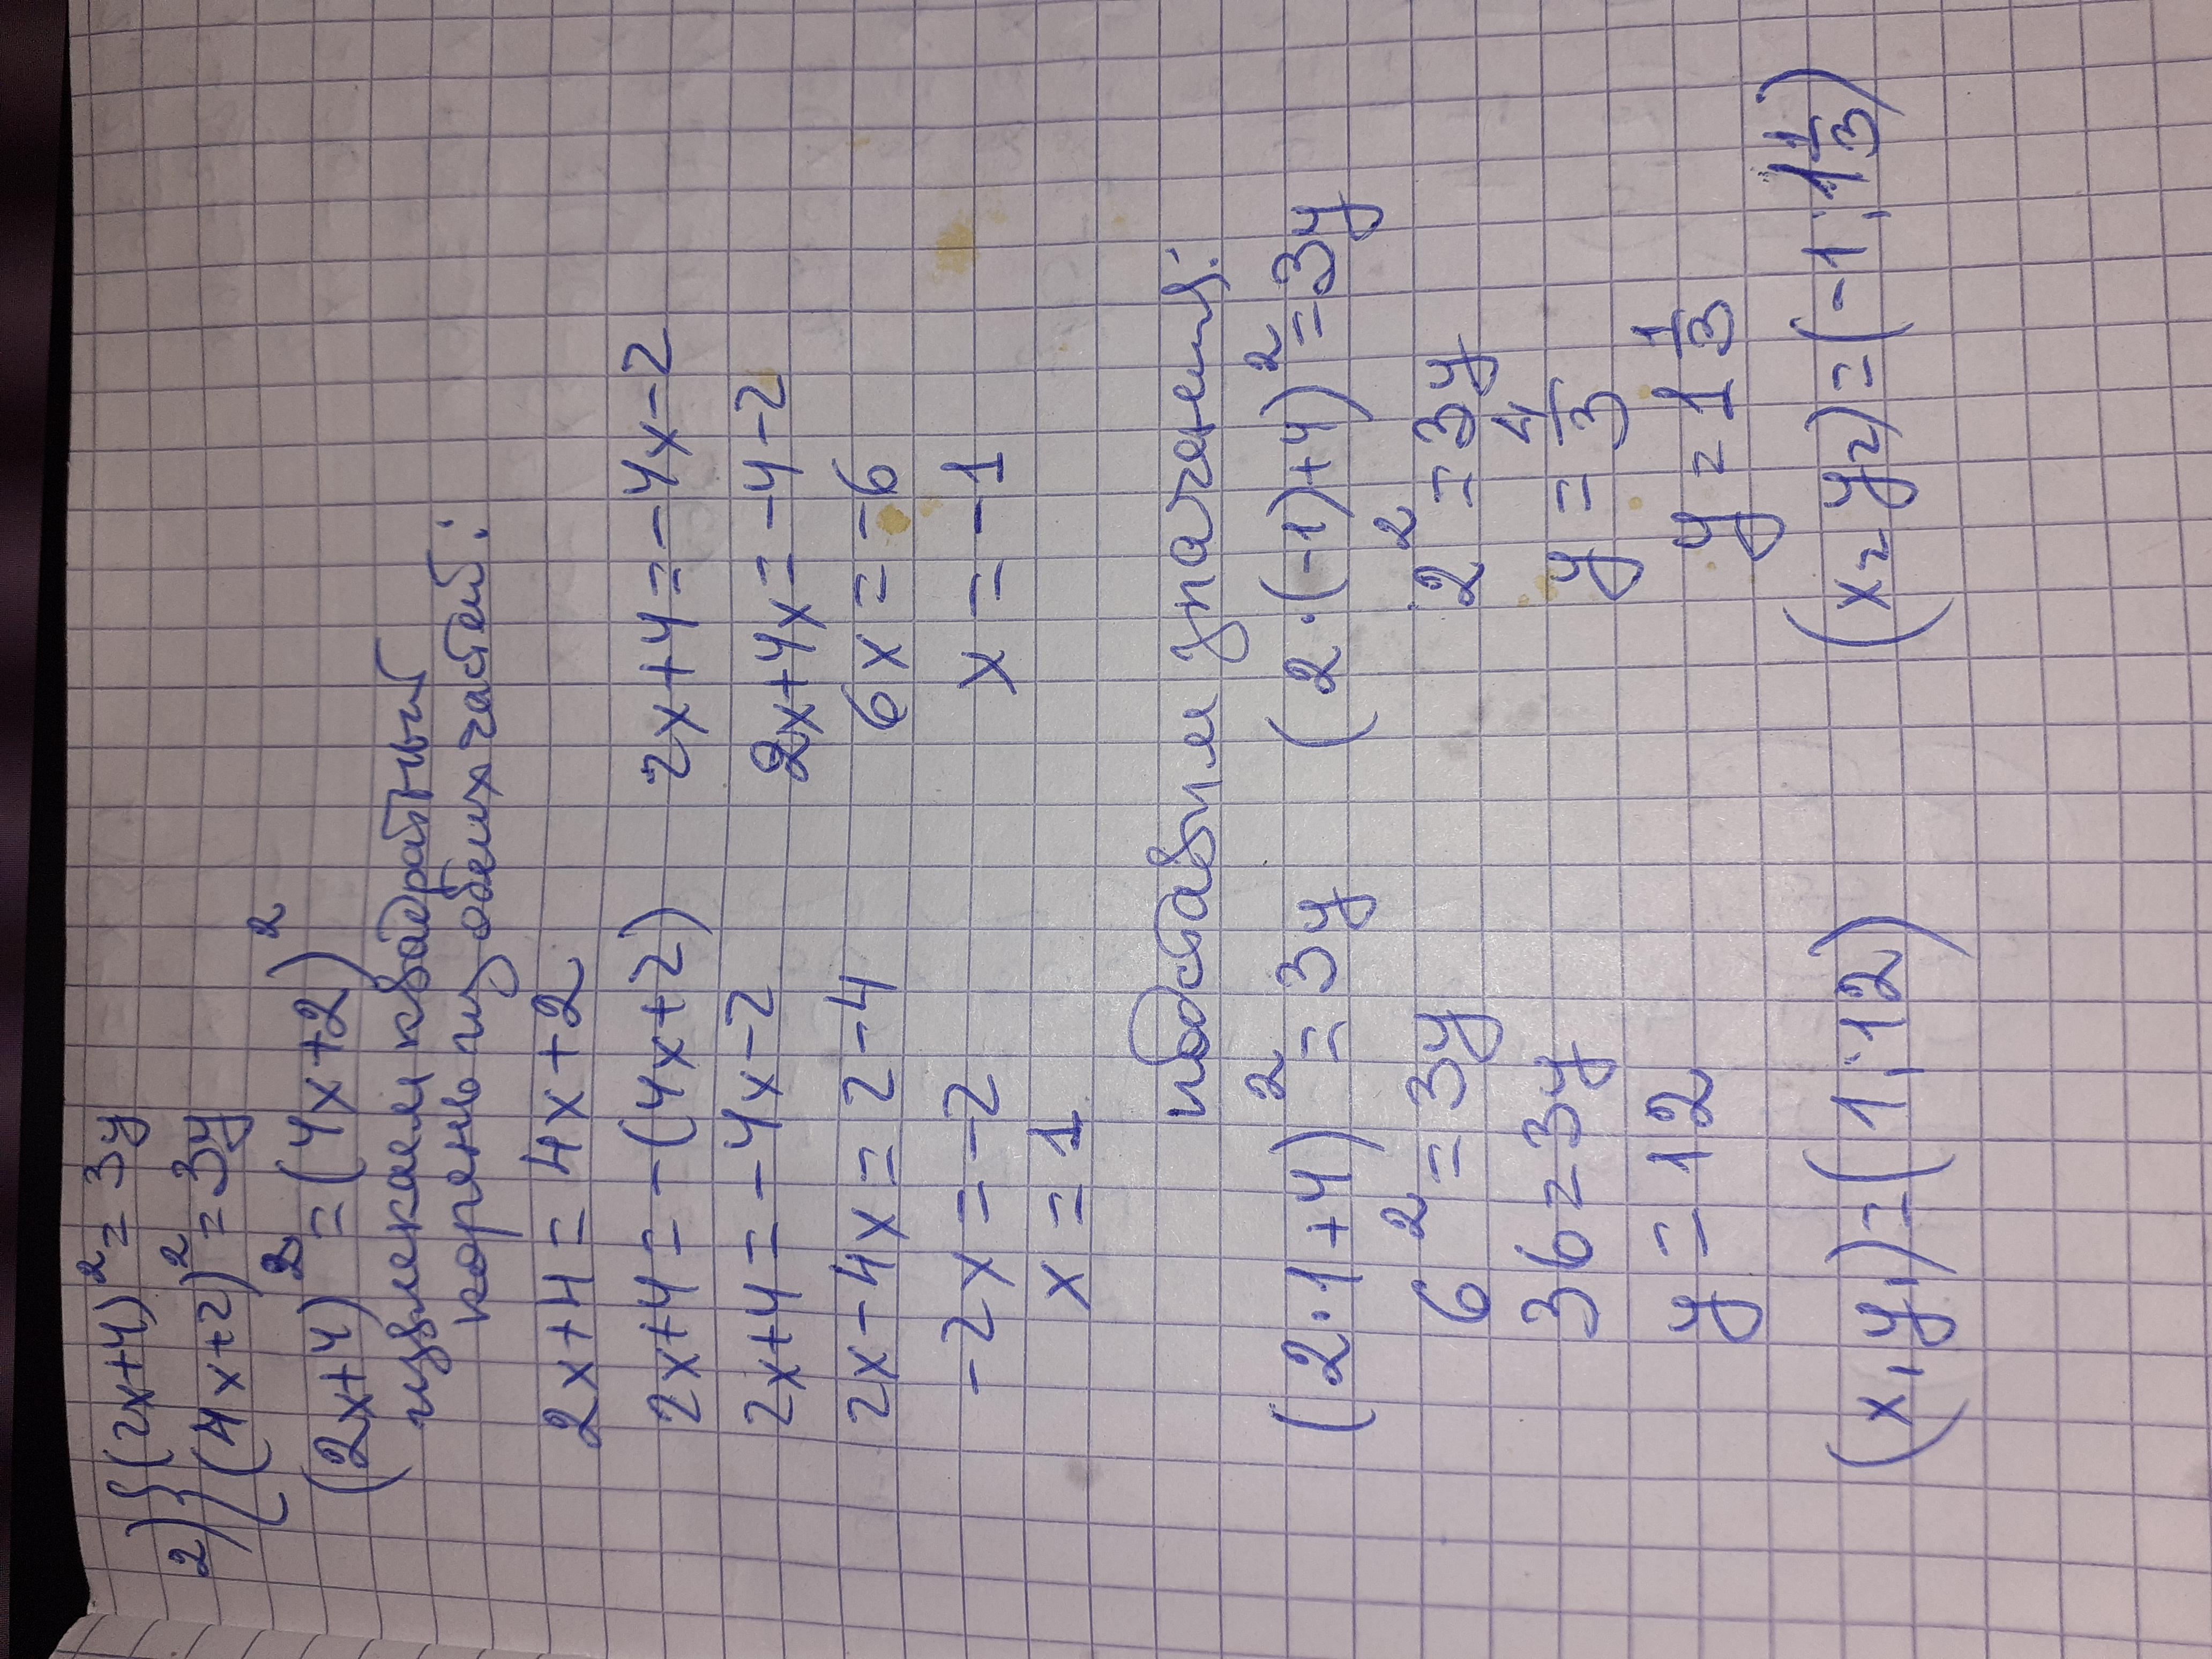 2) { (2x+4)² = 3y
(4x+2)² = 3y
(2x+4)² = (4x+2)²
извлекаем квадратный
корень из обеих частей:
2x+4 = 4x+2
2x+4 = -(4x+2) 2x+4 = -4x-2
2x+4 = -4x-2 2x+4x = -4-2
2x-4x = 2-4 6x = -6
-2x = -2 x = -1
x = 1
подставим значения:
(2·1+4)² = 3y (2·(-1)+4)² = 3y
6² = 3y 2² = 3y
36 = 3y y = 4/3
y = 12 y = 1 1/3
(x₁ y₁) = (1; 12) (x₂ y₂) = (-1; 1 1/3)